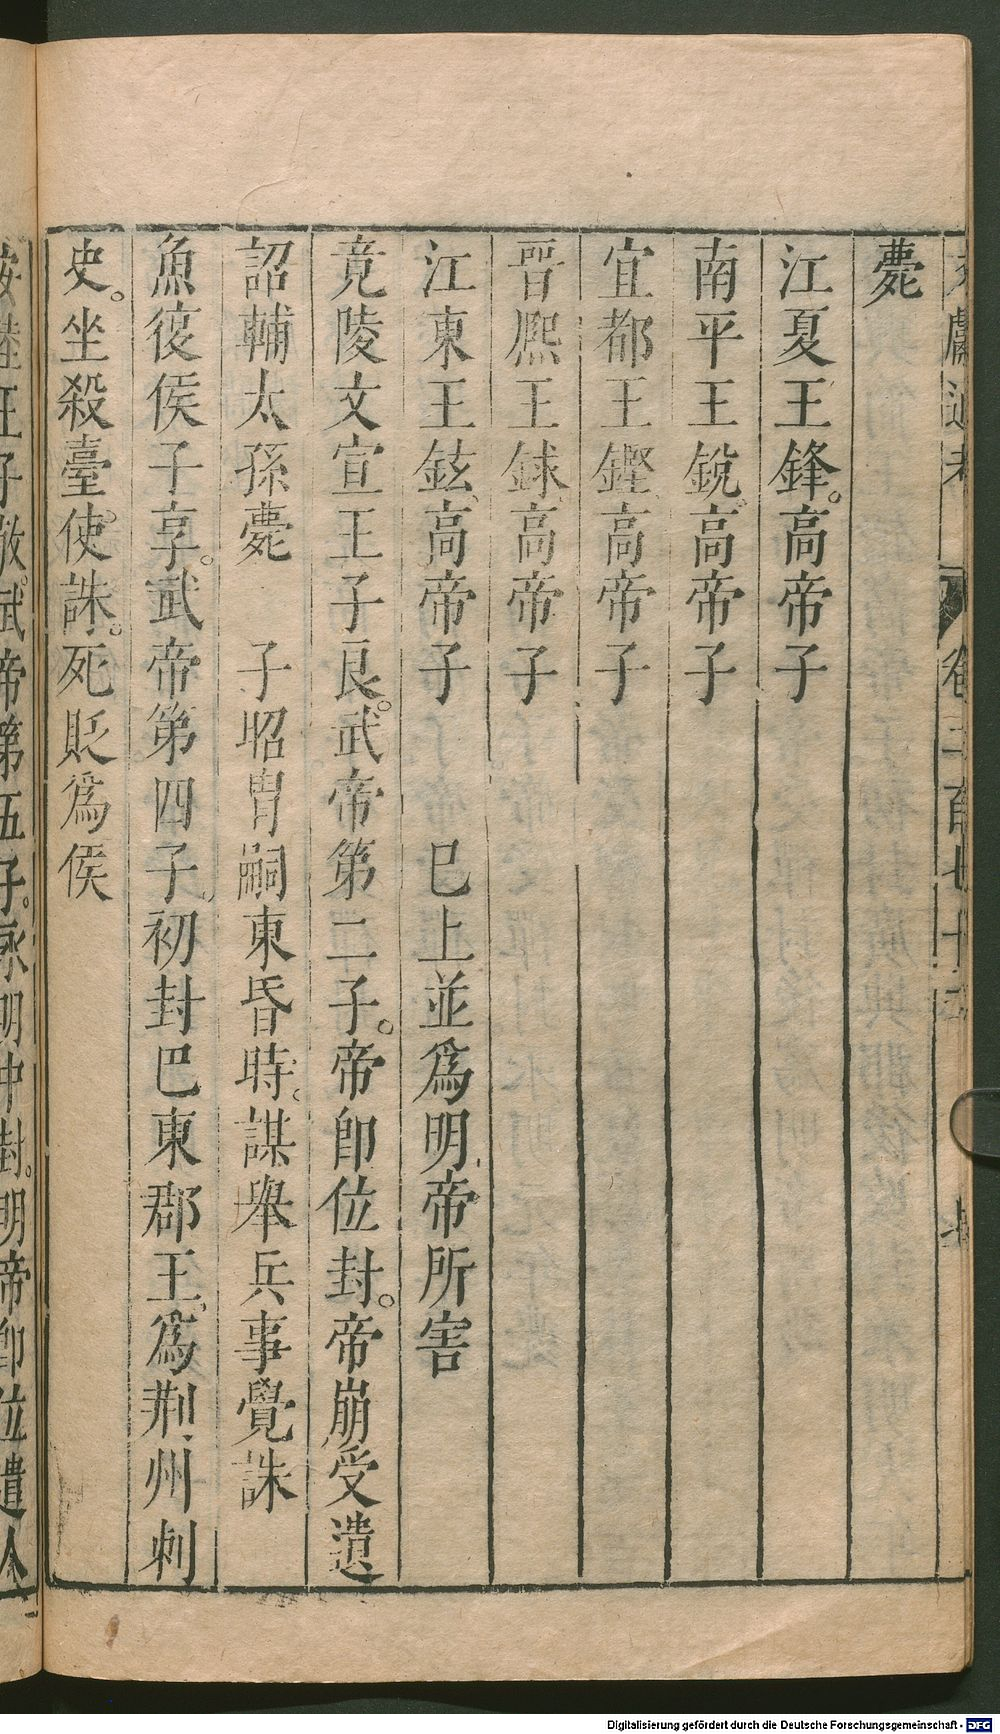 文獻通考 卷二百七十
薨
江夏王鋒。高帝子
南平王銳。高帝子
宜都王鏗。高帝子
晉熈王銶。高帝子
江東王鉉。高帝子 巳上並爲明帝所害
竟陵文宣王子良。武帝第二子。帝卽位封。帝崩受遺
詔輔太孫薨 子昭胄嗣東昏時。謀舉兵事覺誅
魚復侯子享。武帝第四子。初封巴東郡王。爲荆州刺
史。坐殺臺使。誅。死貶爲侯
安陸王子敬。武帝第五子。永明中封。明帝卽位遣人
Digitalisierung gefördert durch die Deutsche Forschungsgemeinschaft - DFG